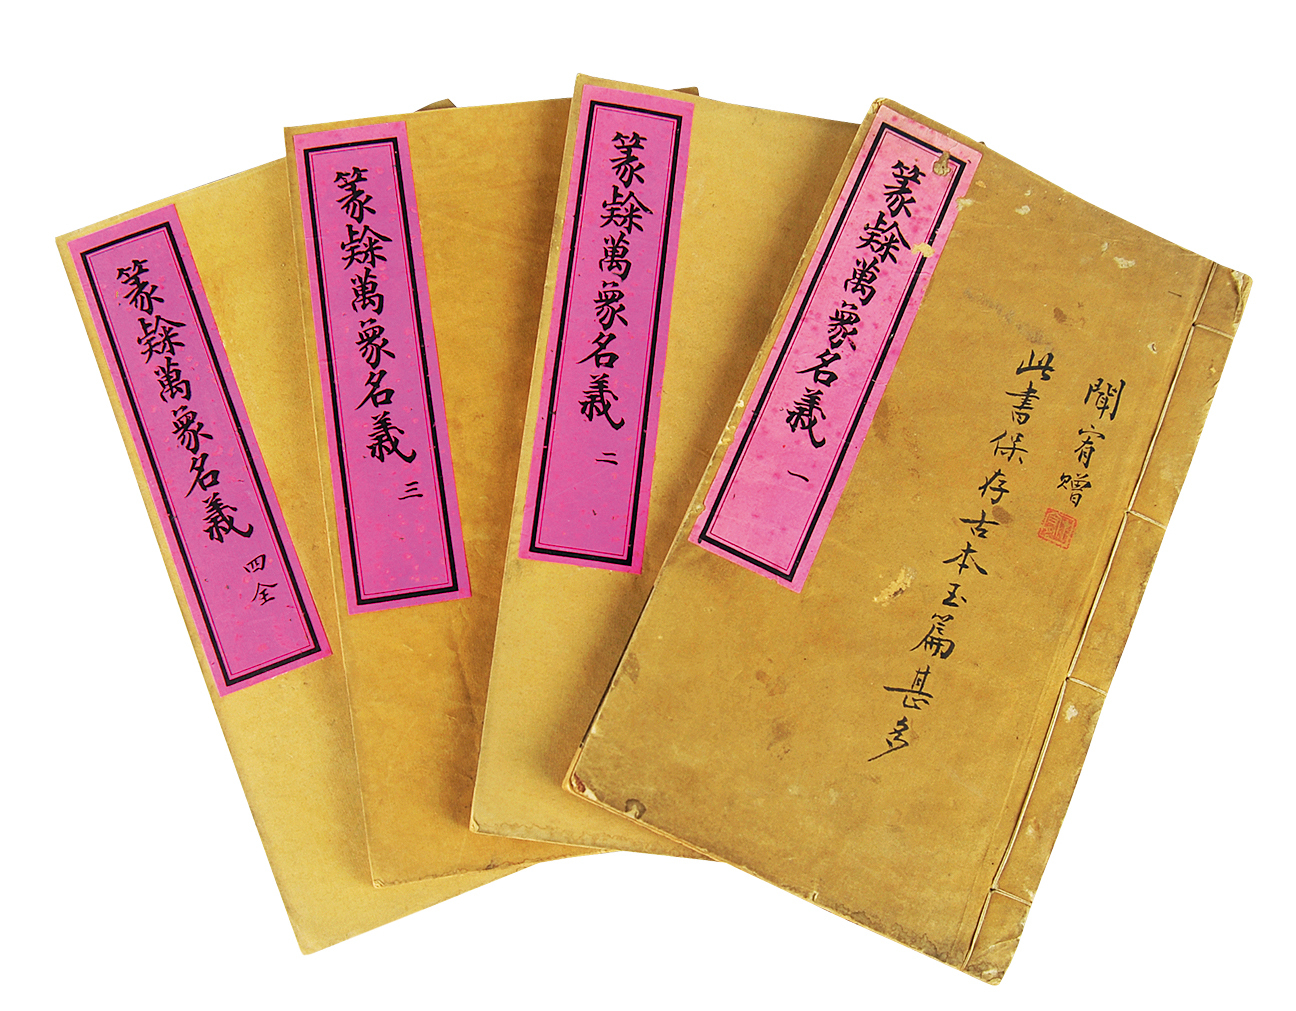 聞宥贈
此書保存古本玉篇甚多
篆隸萬象名義 一
篆隸萬象名義 二
篆隸萬象名義 三
篆隸萬象名義 四全